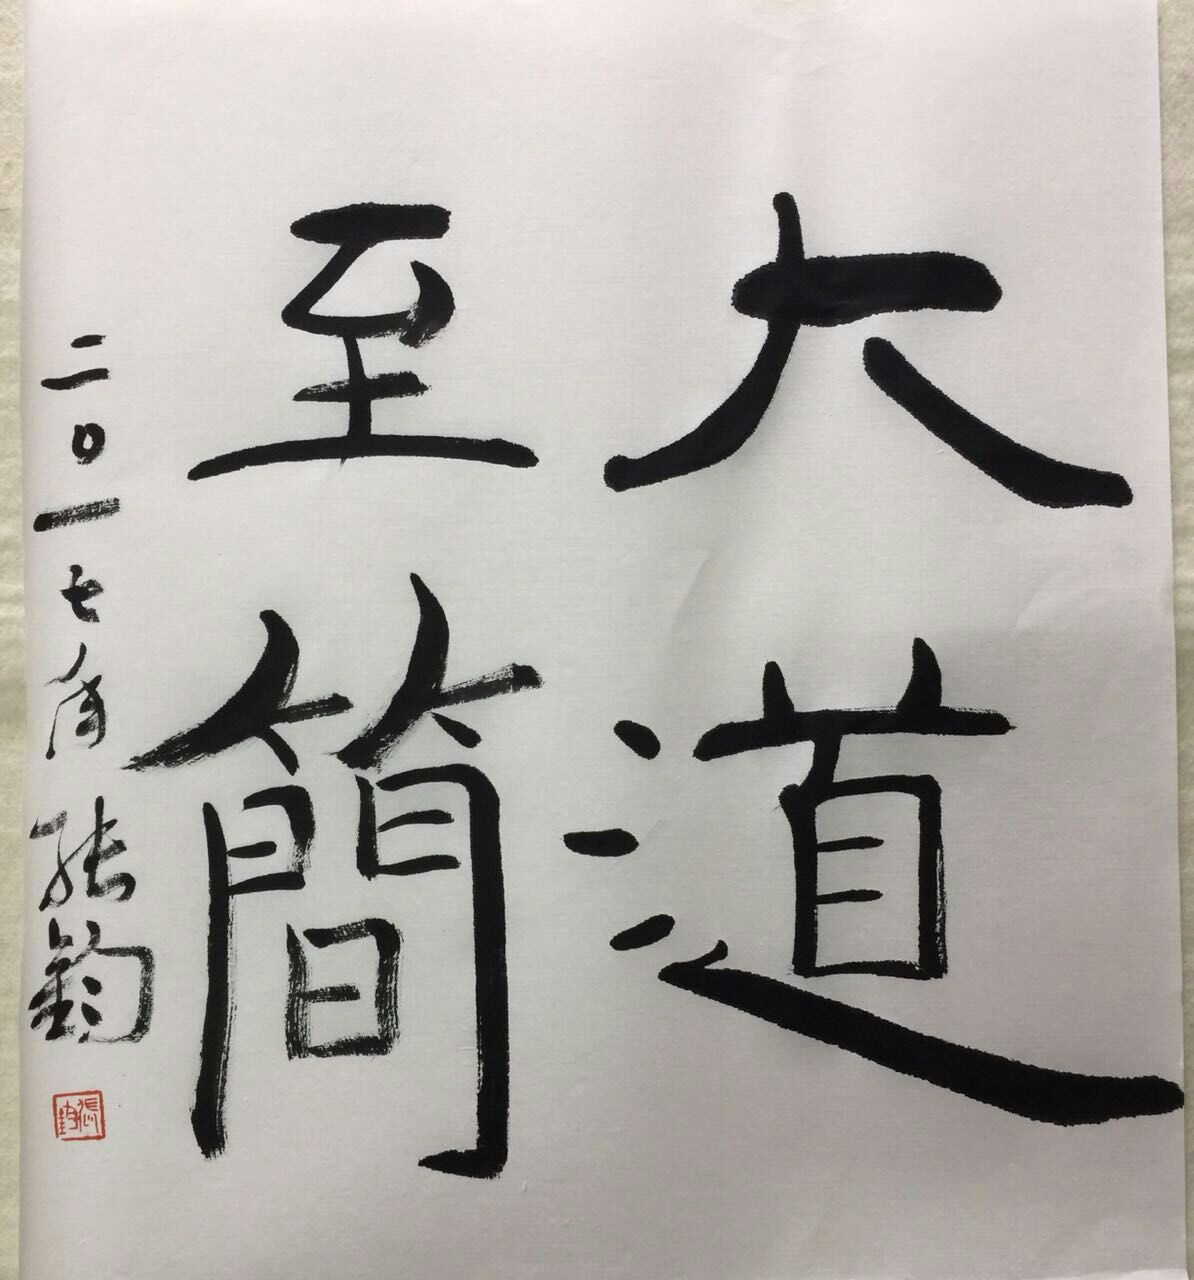 大道
至簡
二〇一七年 张鈞
張鈞